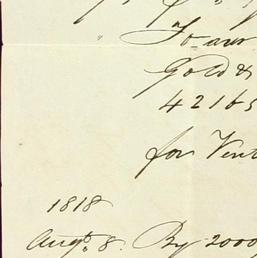 To our
Gold &
42165
for Vent
1818
Augt. 8. By 2000